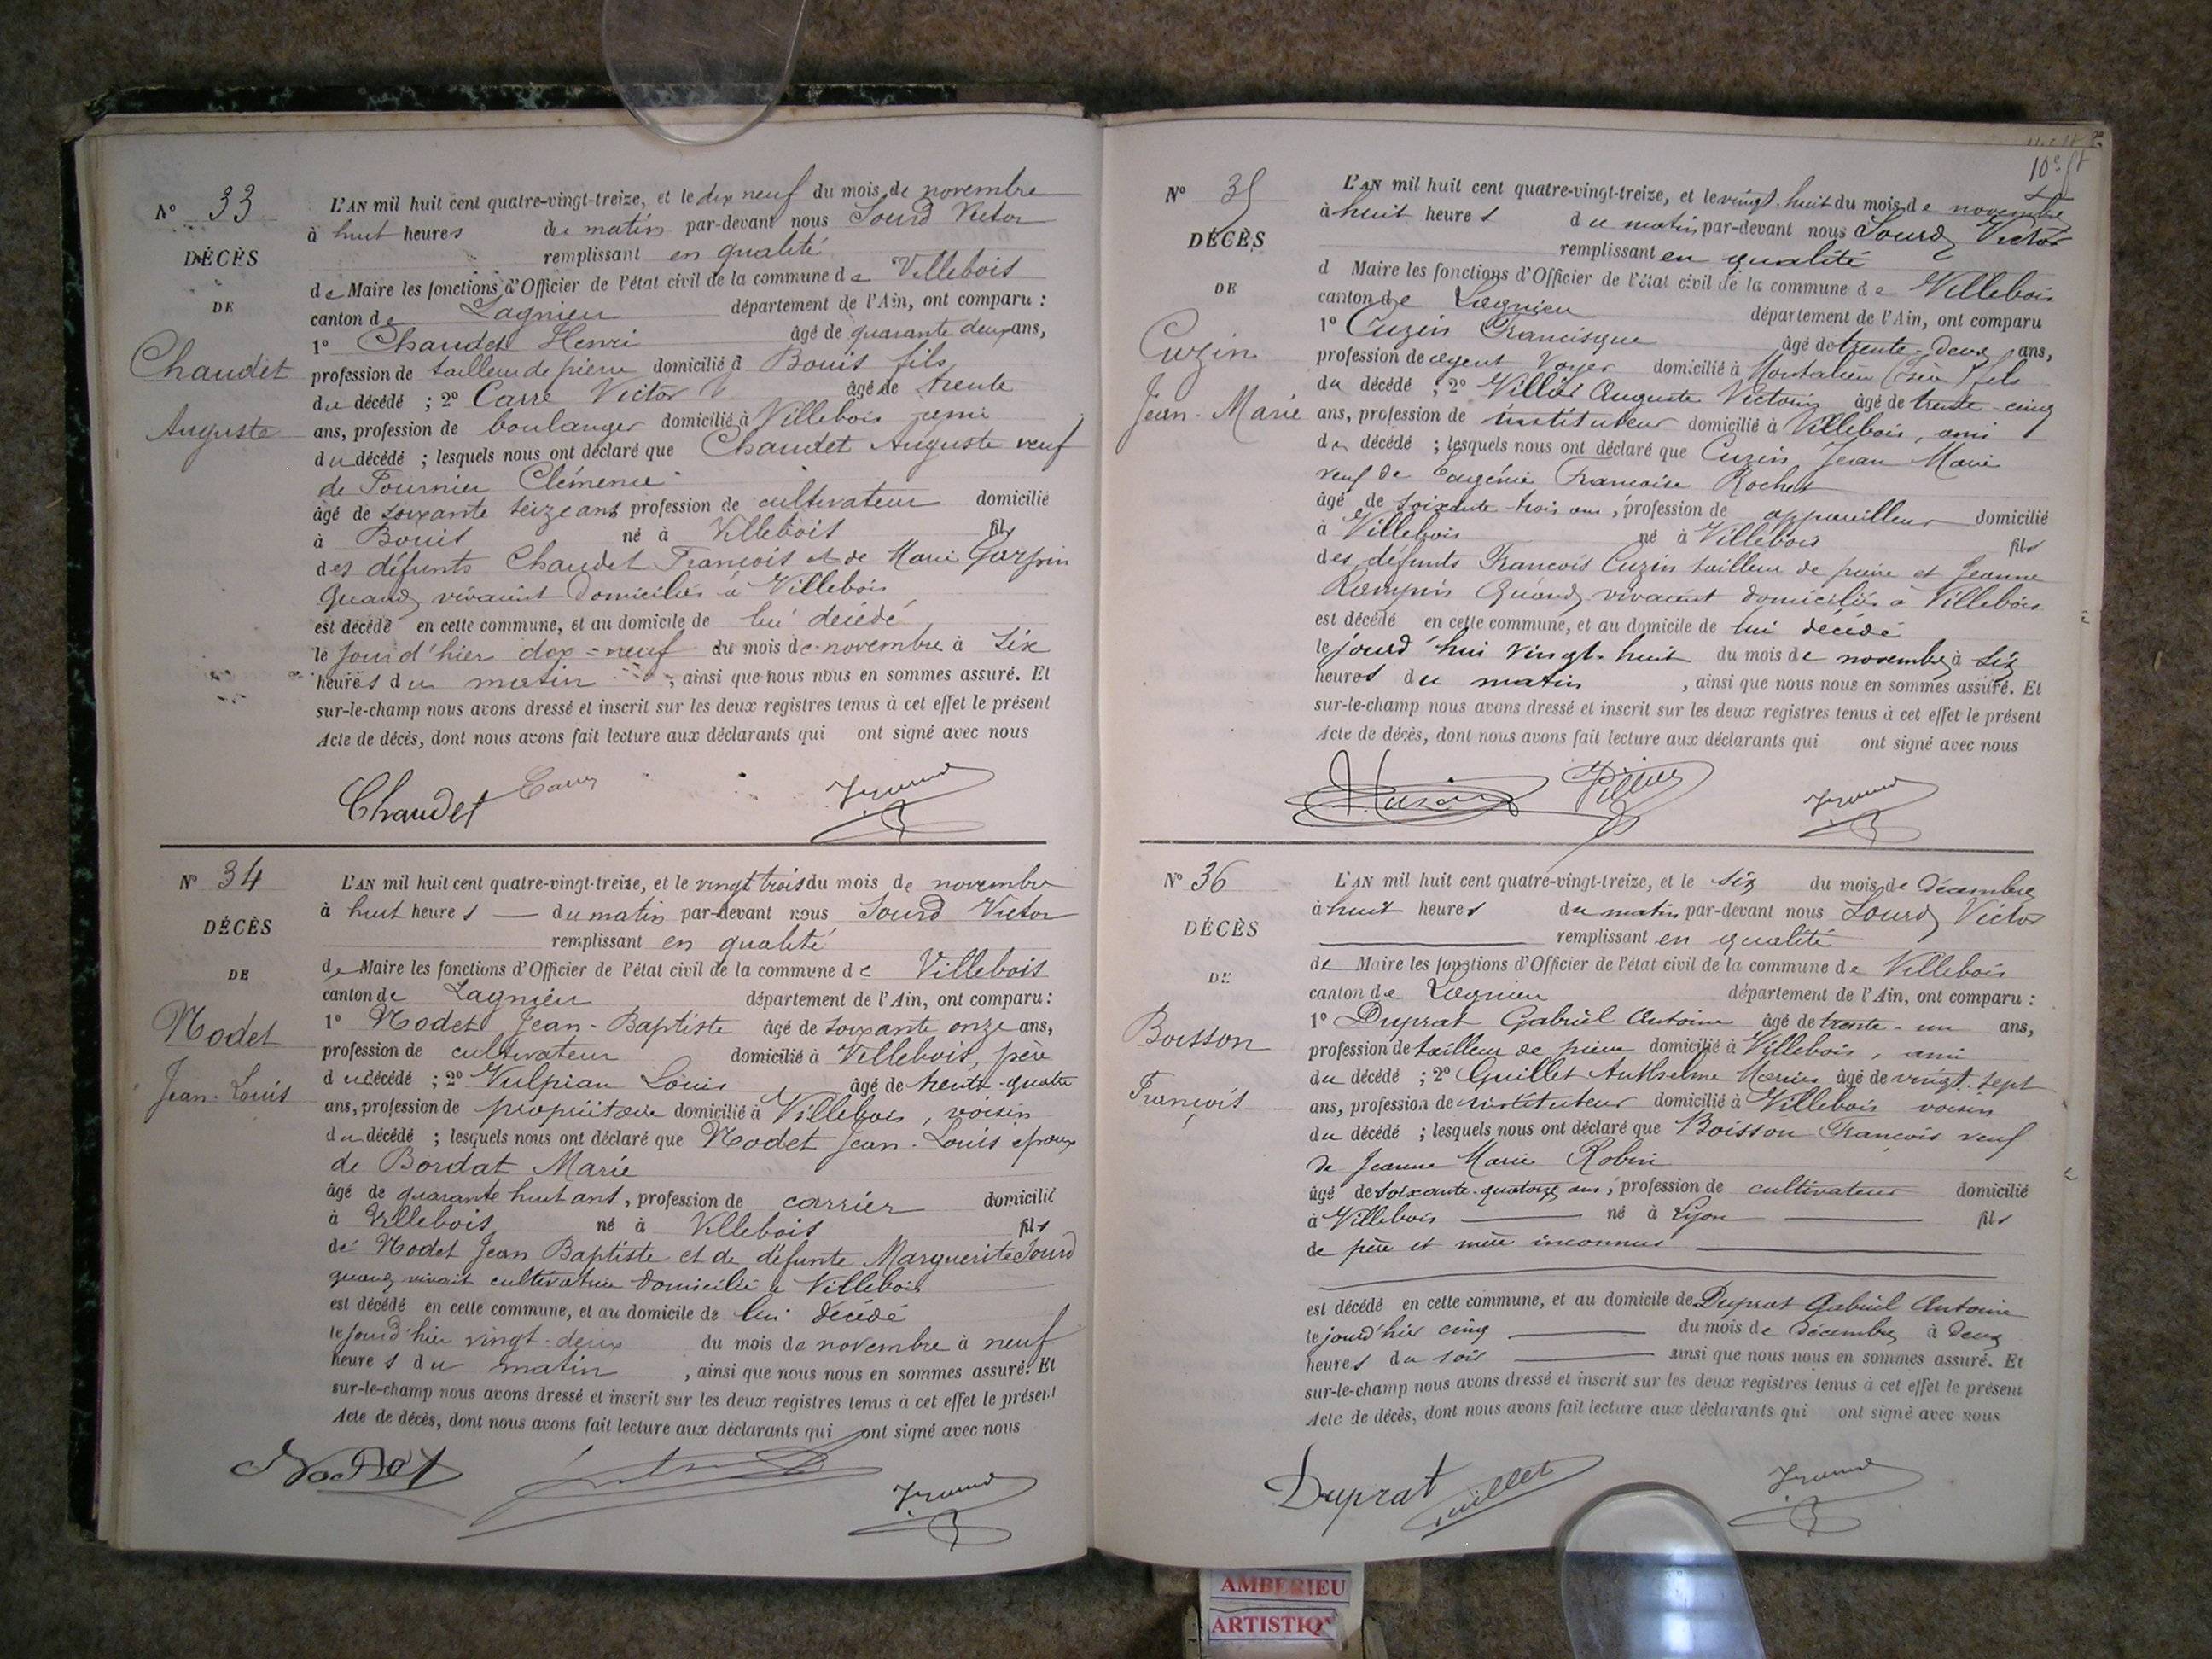 N° 33
DÉCÈS
DE
Chaudet
Auguste
L'AN mil huit cent quatre-vingt-treize, et le dix neuf du mois de novembre
à huit heures du matin par-devant nous Sourd Victor
remplissant en qualité
de Maire les fonctions d'Officier de l'état civil de la commune de Villebois
canton de Lagnieu département de l'Ain, ont comparu :
1° Chaudet Henri âgé de quarante deux ans,
profession de tailleur de pierre domicilié à Bouis fils
du décédé ; 2° Carre Victor âgé de trente
ans, profession de boulanger domicilié à Villebois ami
du décédé ; lesquels nous ont déclaré que Chaudet Auguste veuf
de Fournier Clémence
âgé de soixante seize ans profession de cultivateur domicilié
à Bouis né à Villebois fils
des défunts Chaudet François et de Marie
Quand vivaient domiciliés à Villebois
est décédé en cette commune, et au domicile de lui décédé
le jour d'hier dix=neuf du mois de novembre à six
heures du matin ; ainsi que nous nous en sommes assuré. Et
sur-le-champ nous avons dressé et inscrit sur les deux registres tenus à cet effet le présent
Acte de décès, dont nous avons fait lecture aux déclarants qui ont signé avec nous
Chaudet
N° 34
DÉCÈS
DE
Nodet
Jean-Louis
L'AN mil huit cent quatre-vingt-treize, et le vingt trois du mois de novembre
à huit heures — du matin par-devant nous Sourd Victor
remplissant en qualité
de Maire les fonctions d'Officier de l'état civil de la commune de Villebois
canton de Lagnieu département de l'Ain, ont comparu :
1° Nodet Jean-Baptiste âgé de soixante onze ans,
profession de cultivateur domicilié à Villebois, père
du décédé ; 2° Vulpian Louis âgé de trente-quatre
ans, profession de propriétaire domicilié à Villebois, voisin
du décédé ; lesquels nous ont déclaré que Nodet Jean-Louis époux
de Bordat Marie
âgé de quarante huit ans, profession de carrier domicilié
à Villebois né à Villebois fils
de Nodet Jean Baptiste et de défunte Marguerite Sourd
quand vivait cultivatrice domicilié à Villebois
est décédé en cette commune, et au domicile de lui décédé
le jour d'hier vingt-deux du mois de novembre à neuf
heures du matin , ainsi que nous nous en sommes assuré. Et
sur-le-champ nous avons dressé et inscrit sur les deux registres tenus à cet effet le présent
Acte de décès, dont nous avons fait lecture aux déclarants qui ont signé avec nous
Nodet
10e ft
N° 35
DÉCÈS
DE
Cuzin
Jean-Marie
L'AN mil huit cent quatre-vingt-treize, et le vingt-huit du mois de novembre
à huit heures du matin par-devant nous Sourd Victor
remplissant en qualité
d Maire les fonctions d'Officier de l'état civil de la commune de Villebois
canton de Lagnieu département de l'Ain, ont comparu
1° Cuzin Francisque âgé de trente-deux ans,
profession de agent Voyer domicilié à Montalieu (Isère) fils
du décédé ; 2° Villier Auguste Victorin âgé de trente-cinq
ans, profession de instituteur domicilié à Villebois, ami
du décédé ; lesquels nous ont déclaré que Cuzin Jean Marie
veuf de Eugénie Françoise Rochet
âgé de soixante-trois ans, profession de appareilleur domicilié
à Villebois né à Villebois fils
des défunts François Cuzin tailleur de pierre et Jeanne
Quand vivaient domiciliés à Villebois
est décédé en cette commune, et au domicile de lui décédé
le jourd'hui vingt-huit du mois de novembre à six
heures du matin , ainsi que nous nous en sommes assuré. Et
sur-le-champ nous avons dressé et inscrit sur les deux registres tenus à cet effet le présent
Acte de décès, dont nous avons fait lecture aux déclarants qui ont signé avec nous
N° 36
DÉCÈS
DE
Boisson
François
L'AN mil huit cent quatre-vingt-treize, et le six du mois de décembre
à huit heures du matin par-devant nous Sourd Victor
remplissant en qualité
de Maire les fonctions d'Officier de l'état civil de la commune de Villebois
canton de Lagnieu département de l'Ain, ont comparu :
1° Duprat Gabriel Antoine âgé de trente-un ans,
profession de tailleur de pierre domicilié à Villebois, ami
du décédé ; 2° Guillet Anthelme Marius âgé de vingt-sept
ans, profession de instituteur domicilié à Villebois voisin
du décédé ; lesquels nous ont déclaré que Boisson François veuf
de Jeanne Marie Robin
âgé de soixante-quatorze ans, profession de cultivateur domicilié
à Villebois né à Lyon fils
de père et mère inconnus
est décédé en cette commune, et au domicile de Duprat Gabriel Antoine
le jourd'hier cinq du mois de décembre à deux
heures du soir ainsi que nous nous en sommes assuré. Et
sur-le-champ nous avons dressé et inscrit sur les deux registres tenus à cet effet le présent
Acte de décès, dont nous avons fait lecture aux déclarants qui ont signé avec nous
Duprat Guillet
AMBERIEU
ARTISTIQ